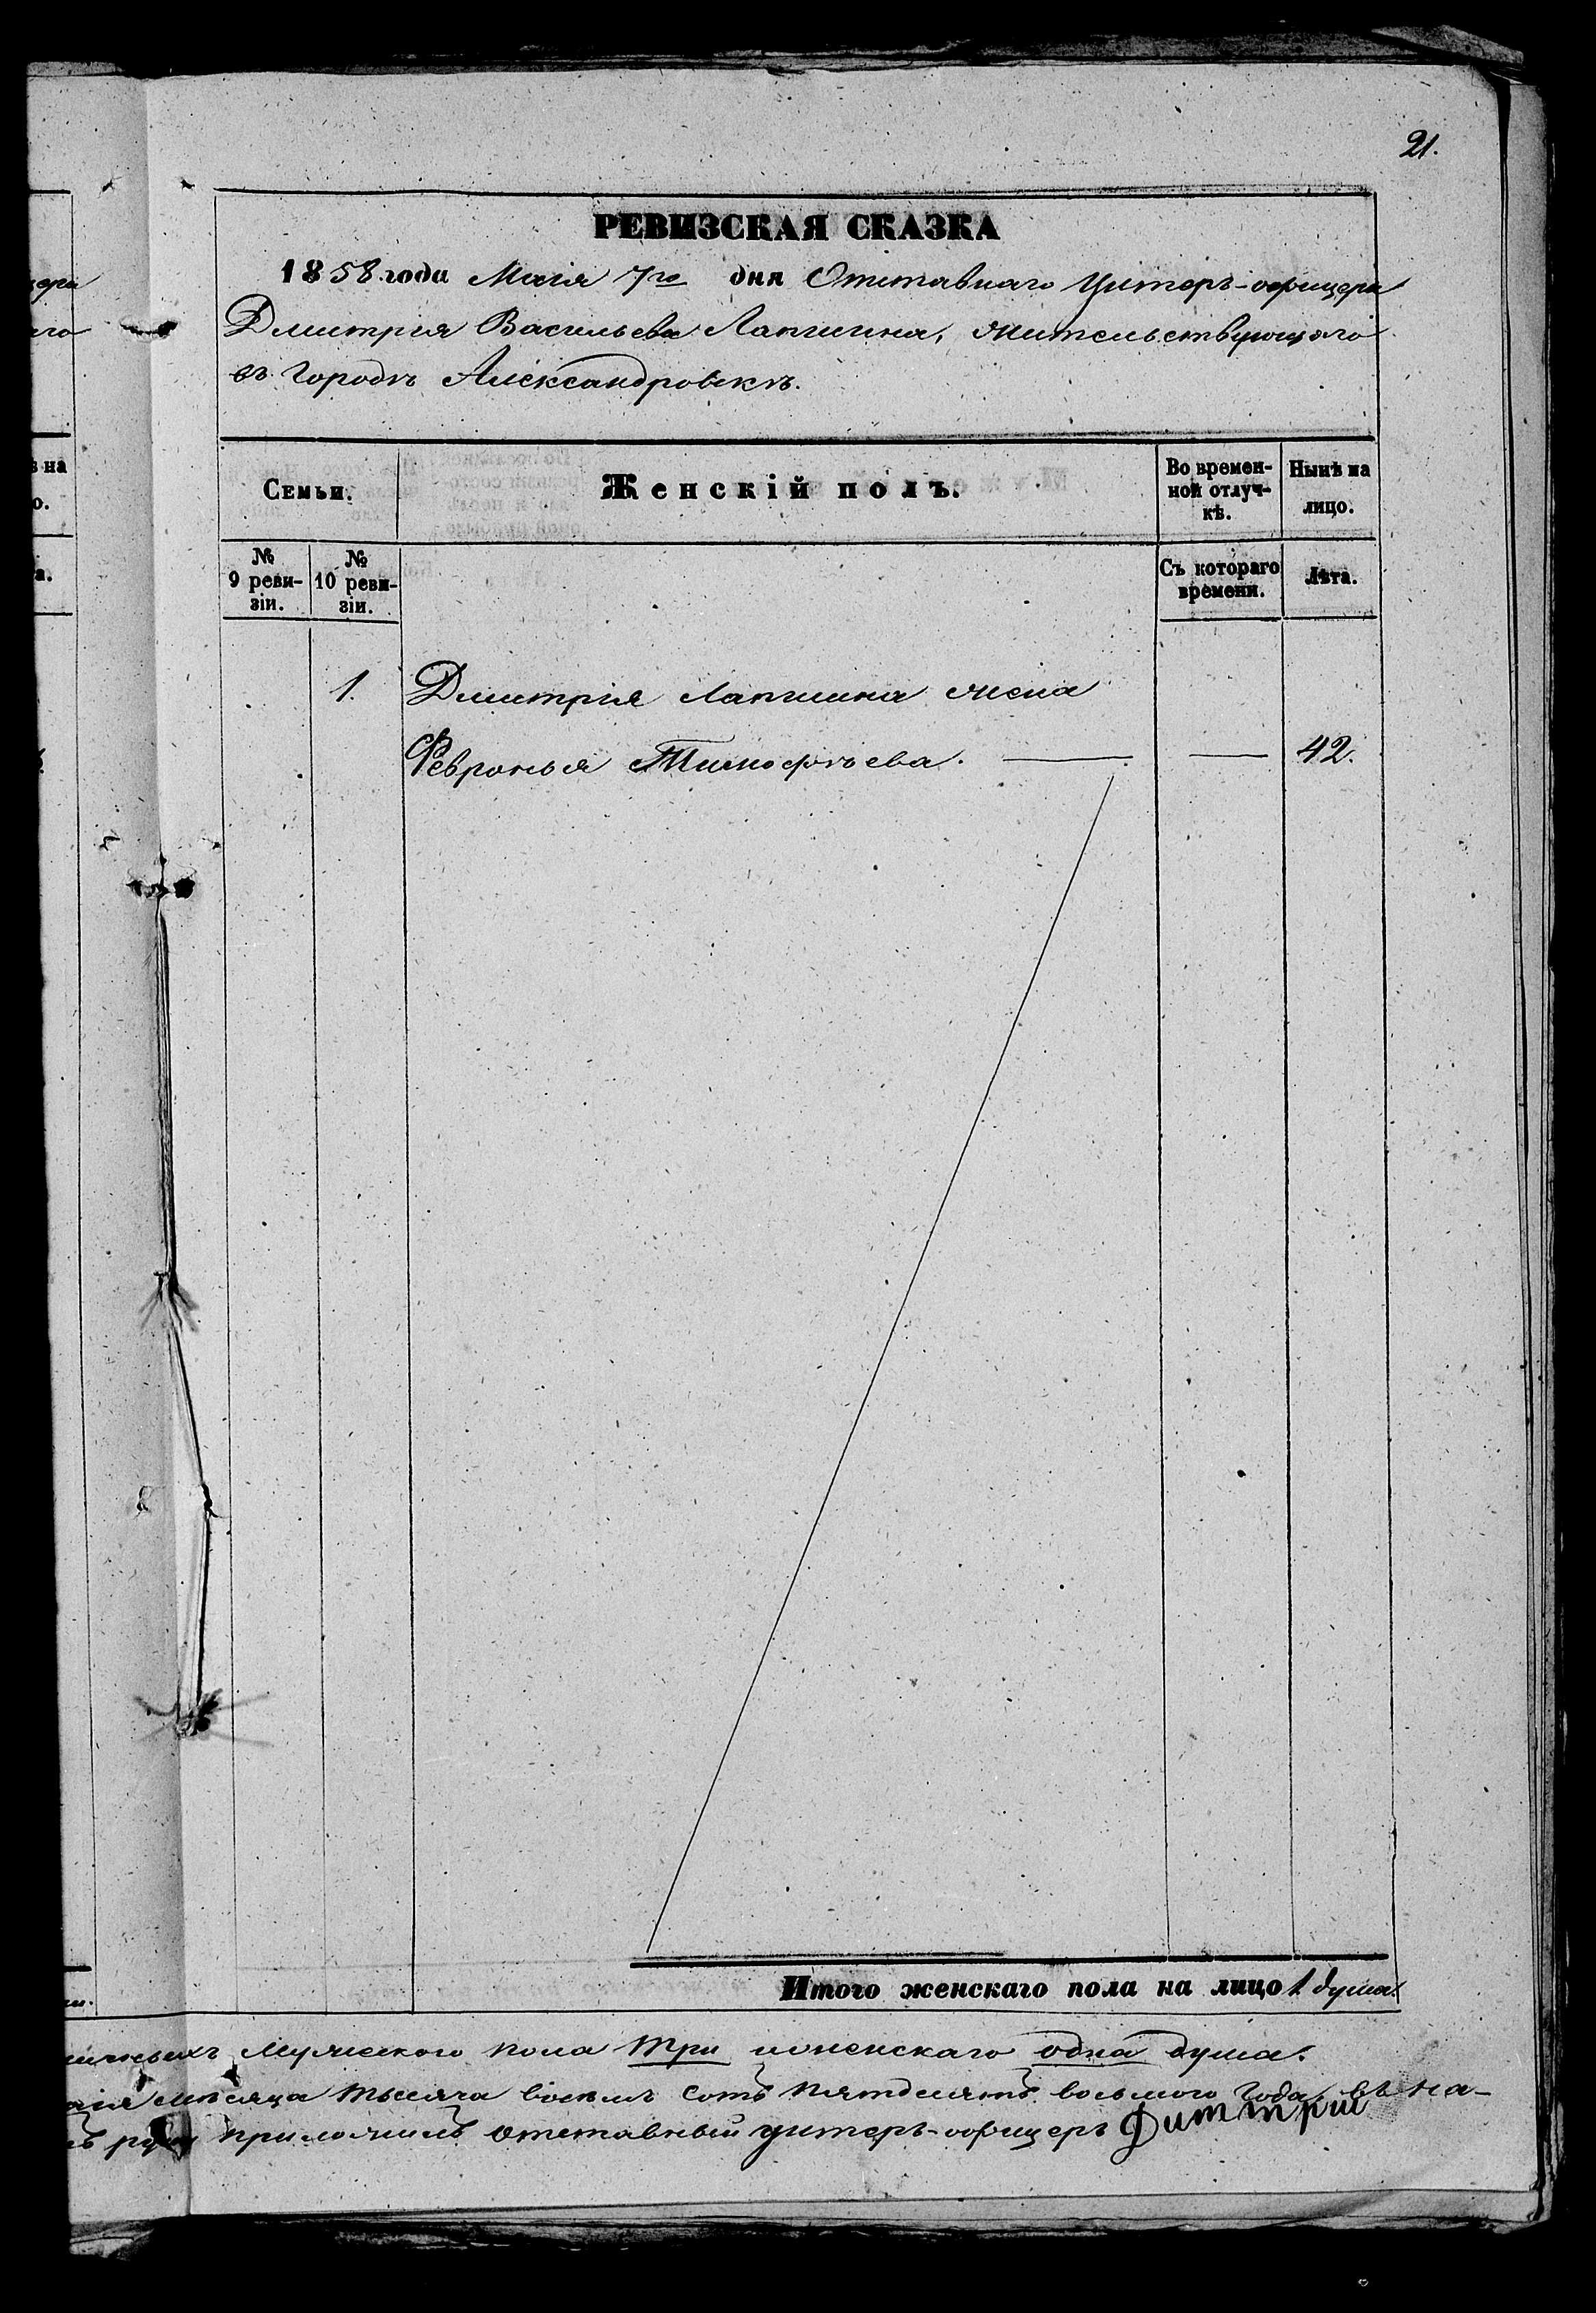 21.
РЕВИЗСКАЯ СКАЗКА
1858 года Маія 7го дня Отставнаго Унтеръ-офицера
Дмитрія Васильева Лапшина, жительствующаго
въ Городѣ Александровскѣ.
Семьи.
Женскій полъ.
Во времен-
ной отлуч-
кѣ.
Нынѣ на
лицо.
№
9 реви-
зіи.
№
10 реви-
зіи.
Съ котораго
времени.
Лѣта.
1. Дмитрія Лапшина жена
Февронья Тимофѣева. — — 42.
Итого женскаго пола на лицо 1 душа.
мужескаго пола три и женскаго одна душа.
мѣсяца тысяча восемь сотъ пятдесятъ восьмого года, въ на-
руку приложилъ отставный унтеръ-офицеръ Дитмтрий